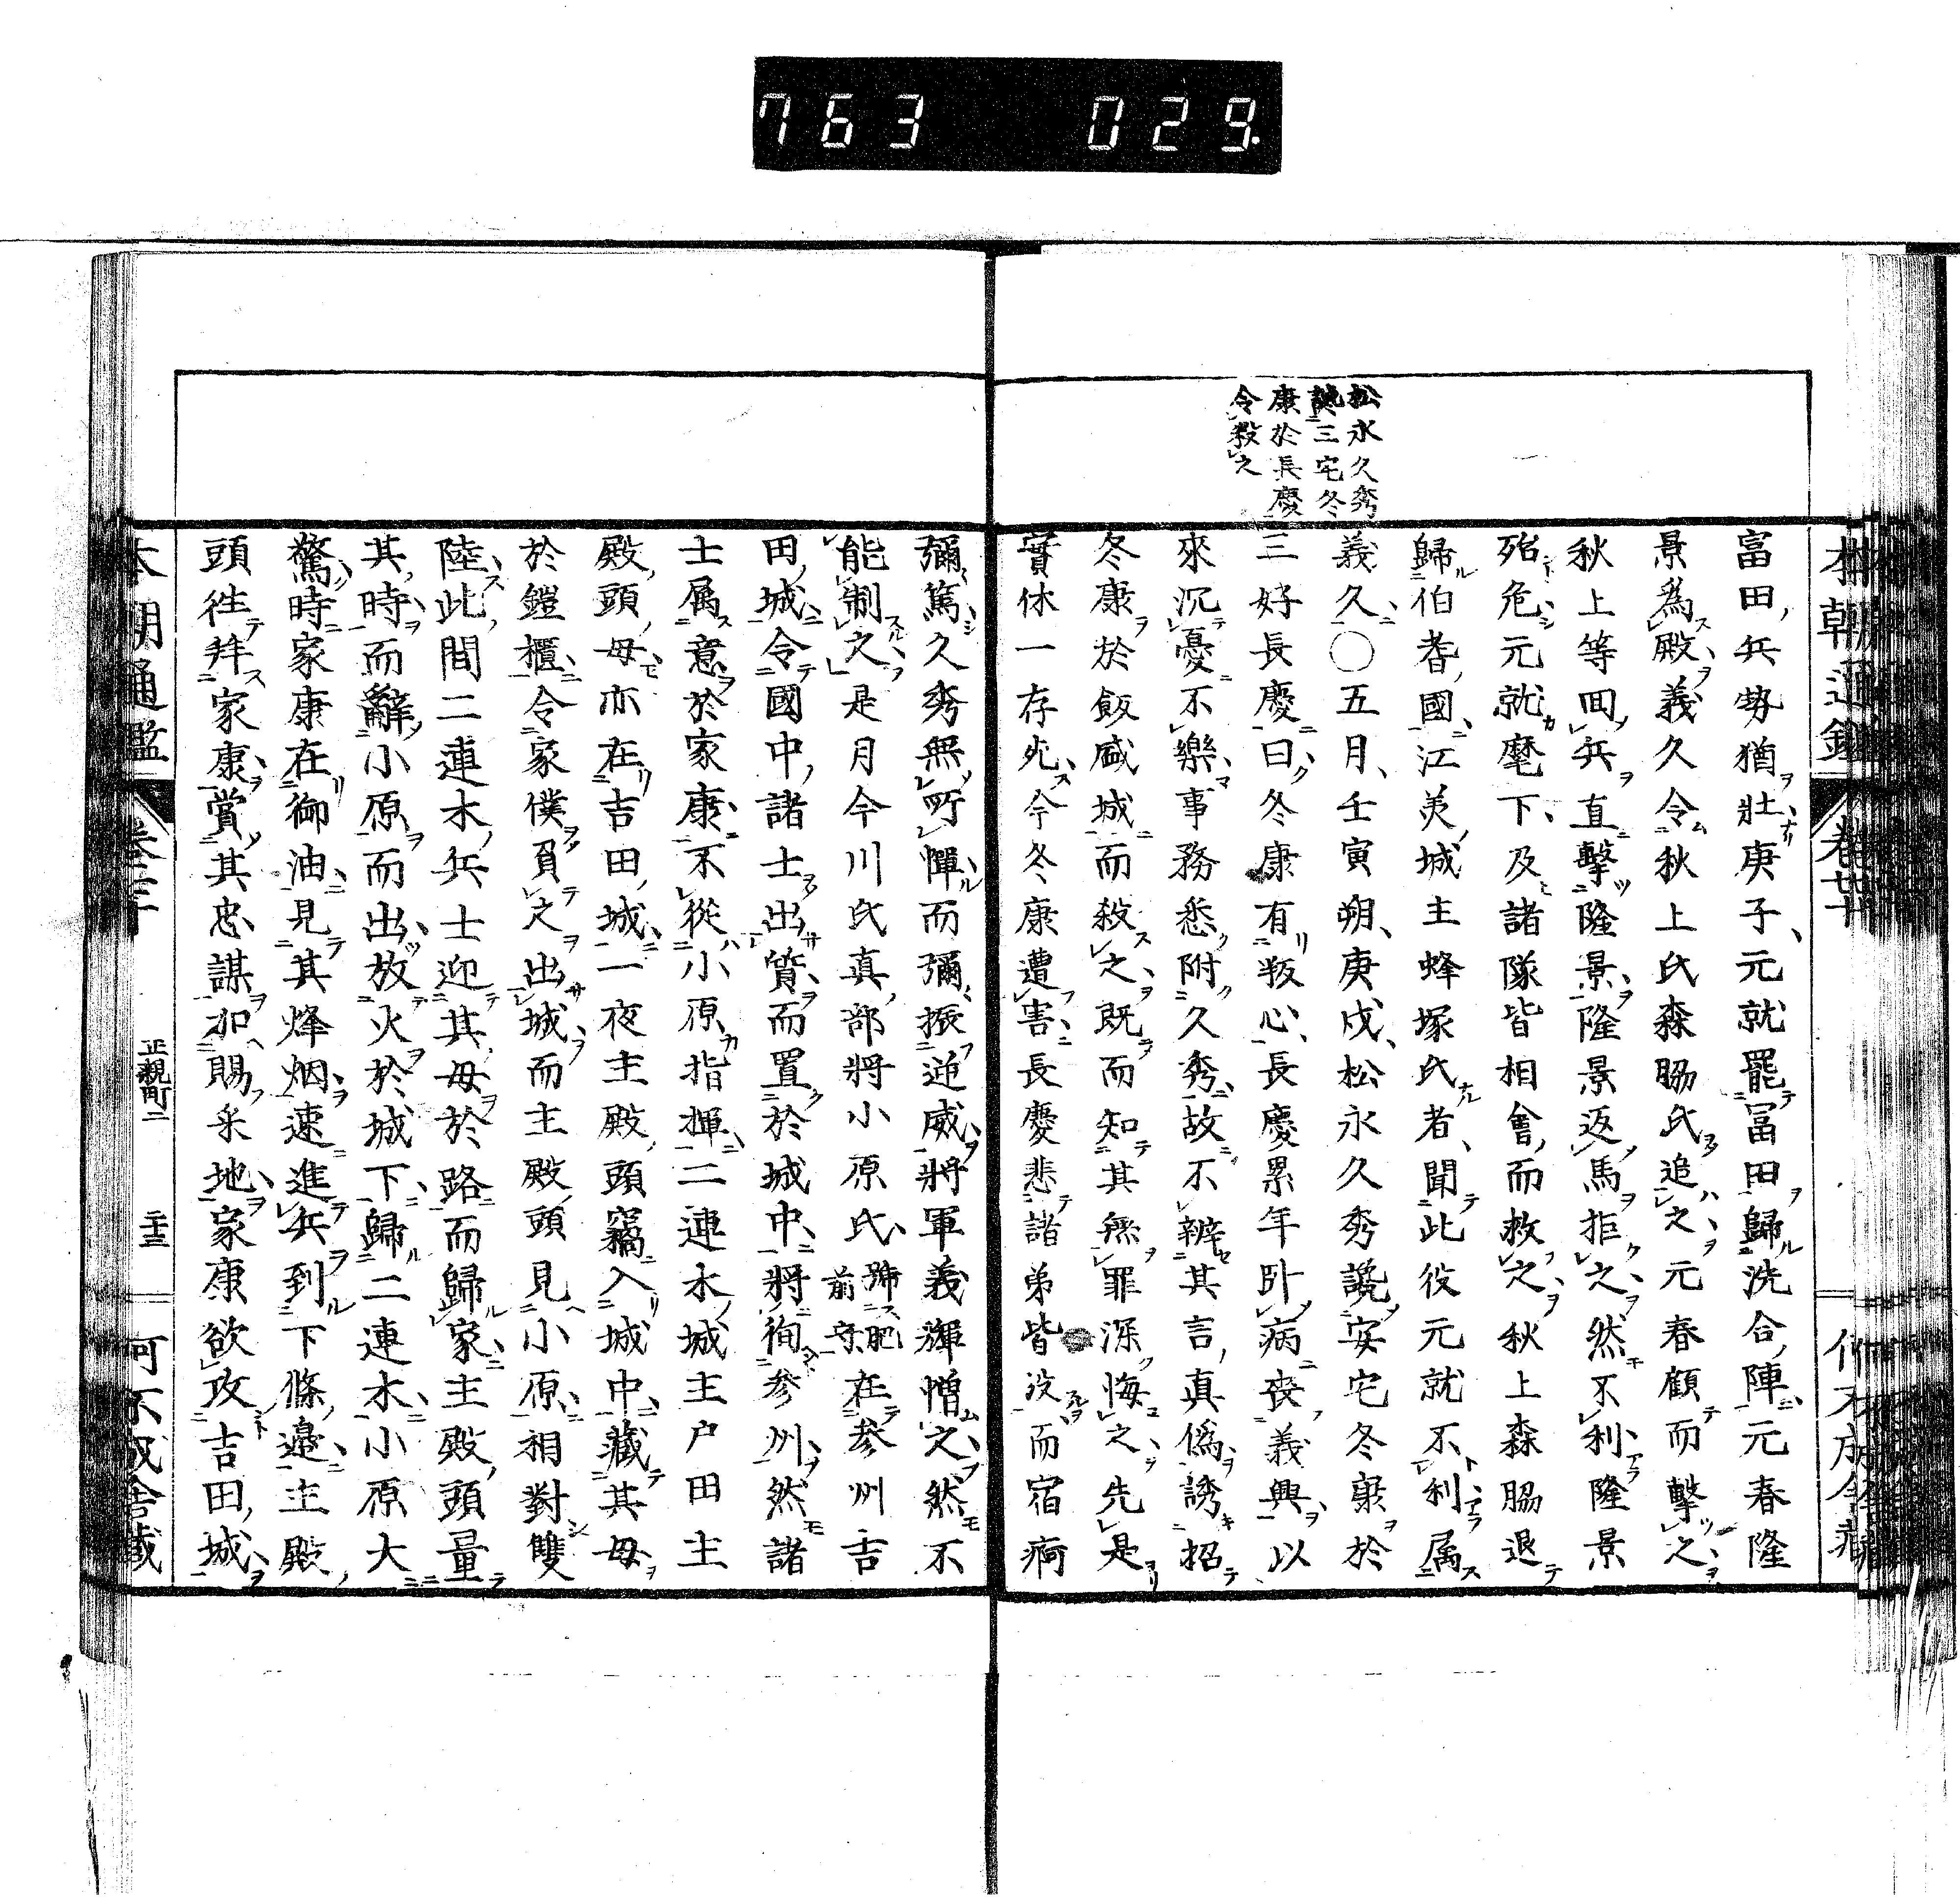 763 029.
松永久秀
讒三宅冬
康於長慶
令殺之
富田兵勢猶壯庚子元就罷富田歸洗合陣元春隆
景為殿義久令秋上氏森脇氏追之元春顧而擊之
秋上等回兵直擊隆景隆景返馬拒之然不利隆景
殆危元就麾下及諸隊皆相會而救之秋上森脇退
歸伯耆國江美城主蜂塚氏者聞此役元就不利属
義久○五月壬寅朔庚戌松永久秀讒安宅冬康於
三好長慶曰冬康有叛心長慶累年臥病喪義興以
來沉憂不樂事務悉附久秀故不辨其言真偽誘招
冬康於飯盛城而殺之既而知其無罪深悔之先是
實休一存死今冬康遭害長慶悲諸弟皆没而宿痾
彌篤久秀無所憚而彌振迎威將軍義輝憎之然不
能制之是月今川氏真部將小原氏號肥前守在參州吉
田城令國中諸士出質而置於城中將徇參州然諸
士属意於家康不從小原指揮二連木城主戸田主
殿頭母亦在吉田城一夜主殿頭竊入城中藏其母
於鎧櫃令家僕負之出城而主殿頭見小原相對雙
陸此間二連木兵士迎其母於路而歸家主殿頭量
其時而辭小原而出放火於城下歸二連木小原大
驚時家康在御油見其烽烟速進兵到下條邊主殿
頭徃拜家康賞其忠謀加賜采地家康欲攻吉田城
本朝通鑑 卷三十 正親町二 二十三